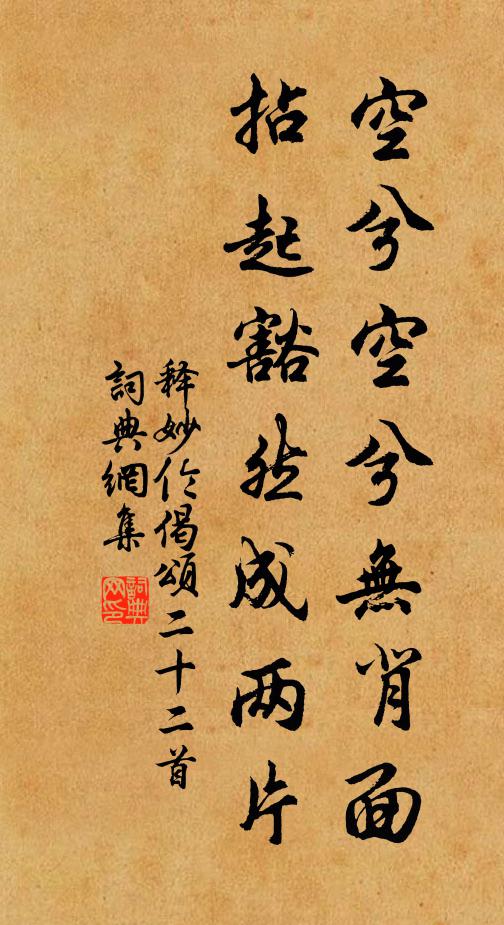 空兮空兮無背面
拈起豁然成两片
释妙伦偈頌二十二首
詞典網集
詞典
网印